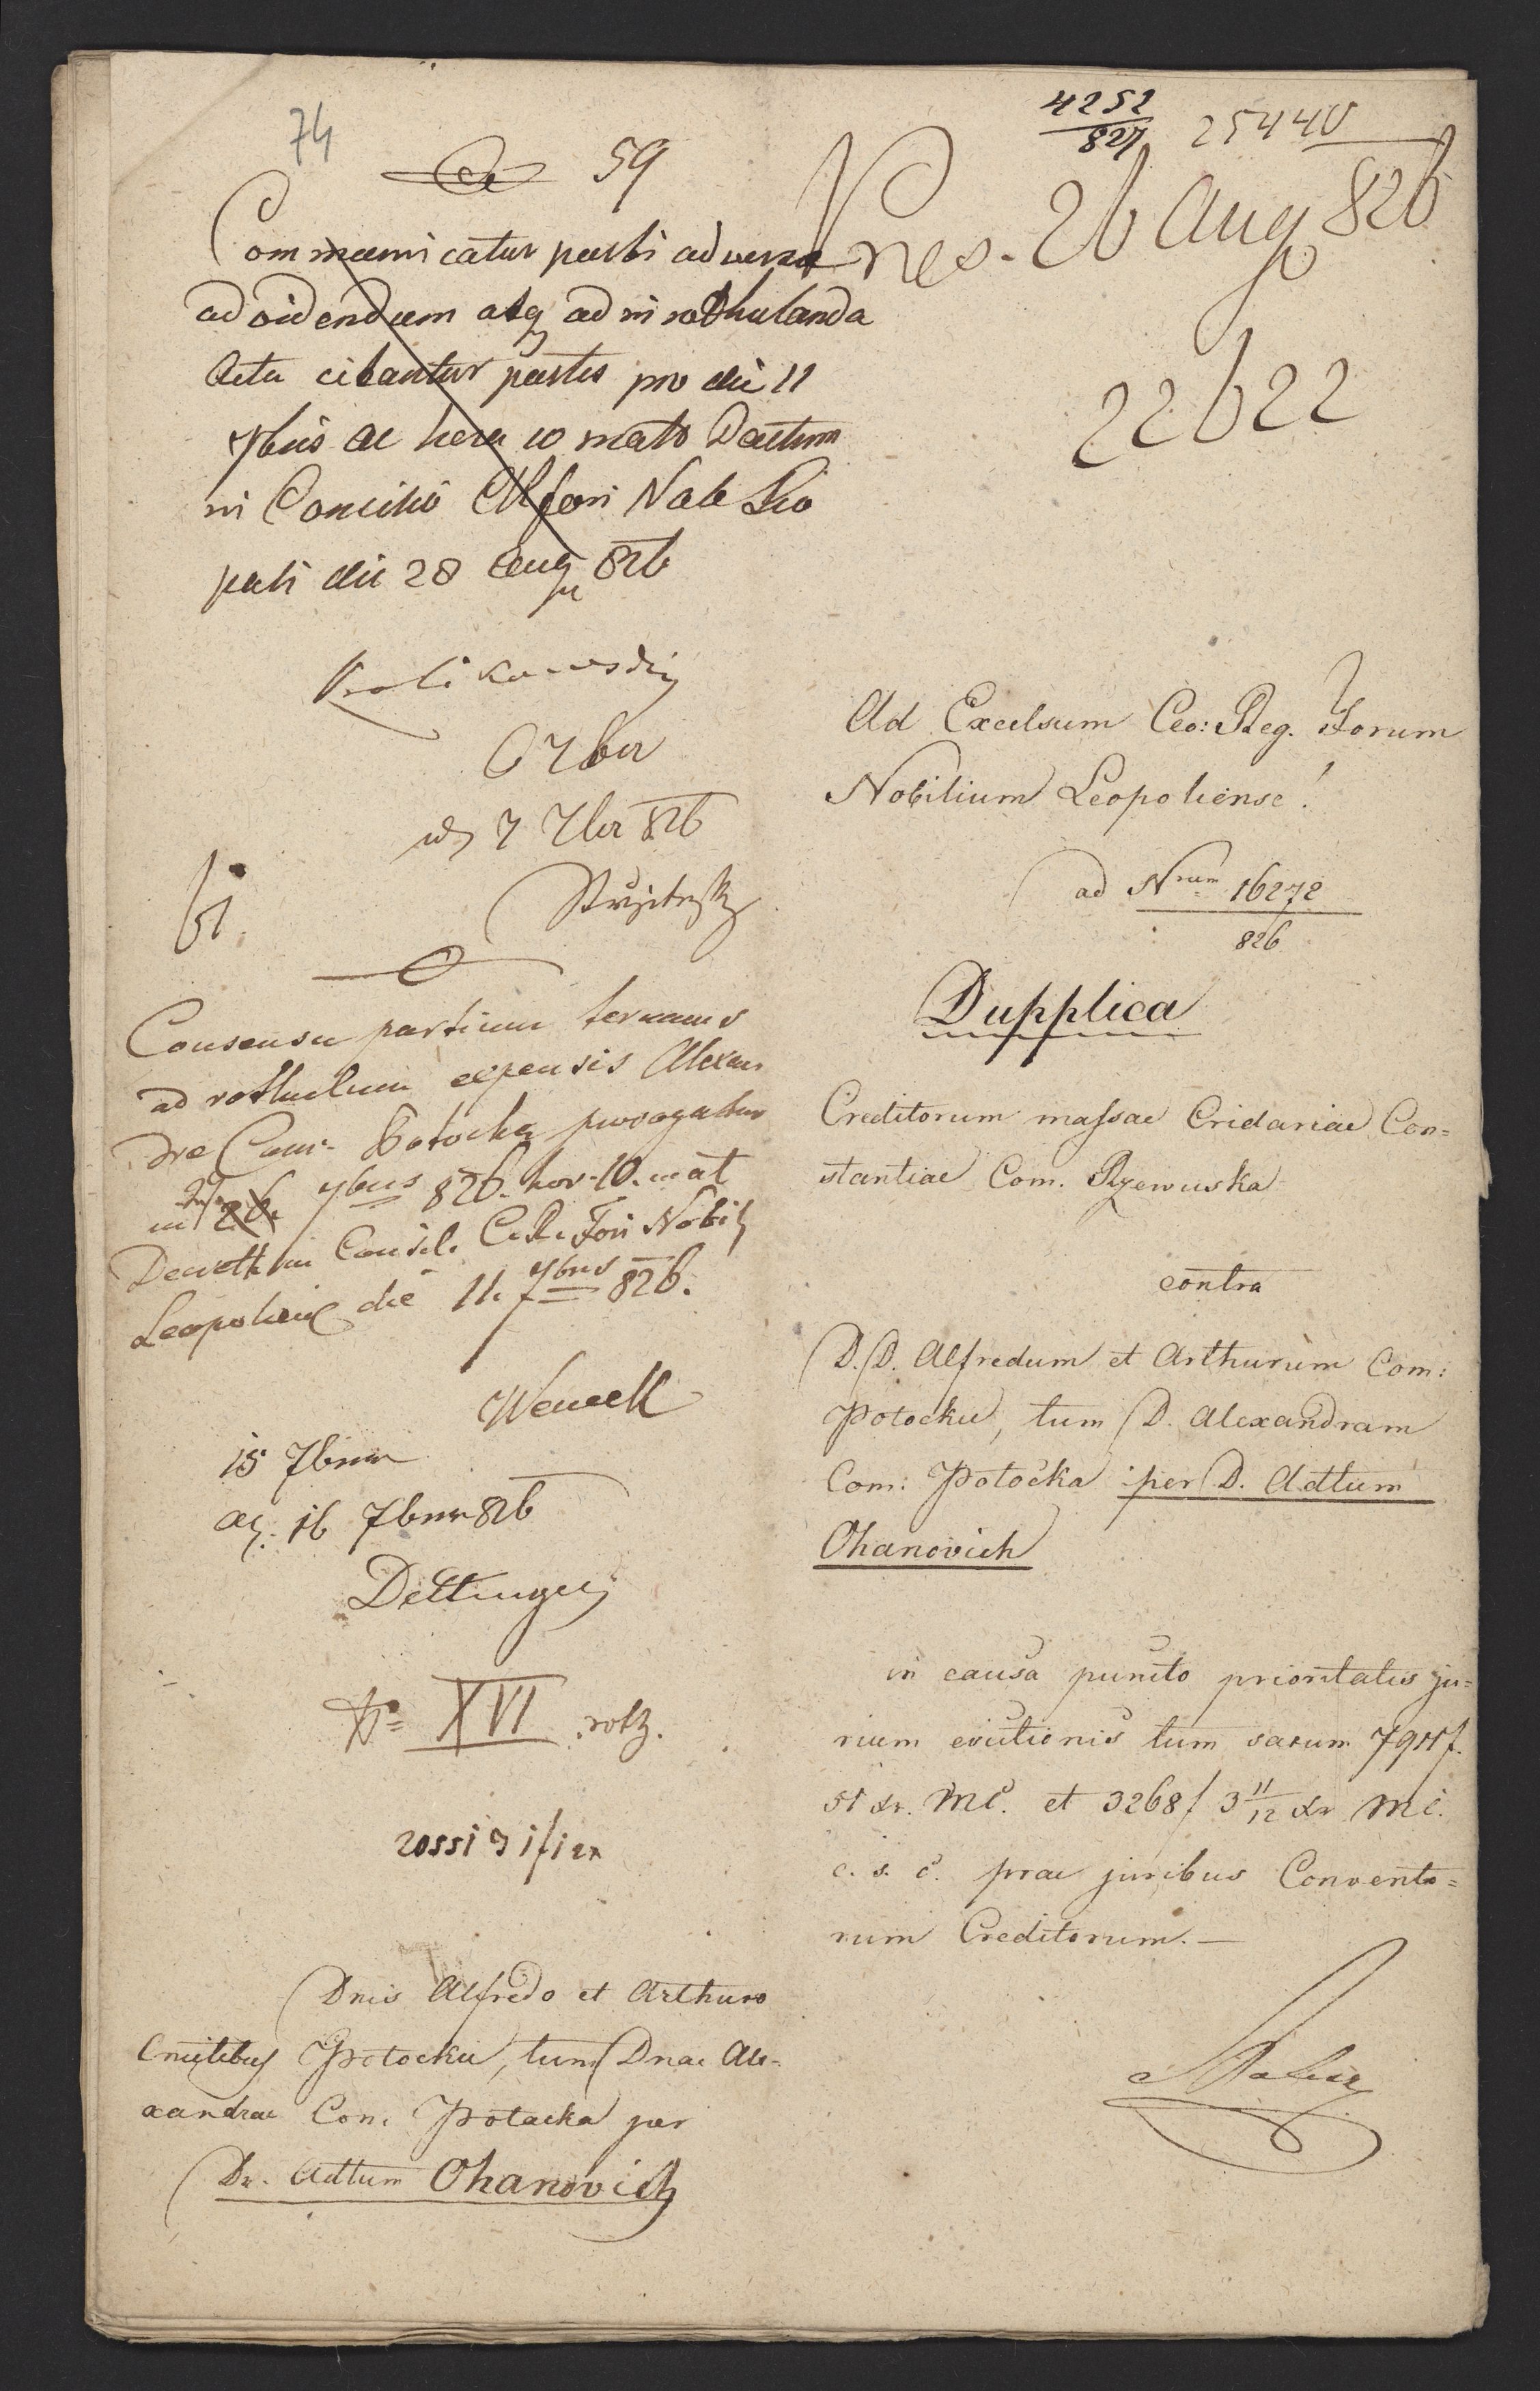 74
59
Communicatur parti adversae
ad videndum atq ad inrothulanda
Acta citantur partes pro die 11
7bris ac hora 10 mat Datum
in Consilio CR fori Nob Leo
poli die 28 Aug 826
Krolikowski
6 7ber
7 7ber 826
61.
Consensu partium terminus
ad rothulum expensis Alexan
drae Com. Potocka prorogatur
in 26. 7bris 826. hor. 10. mat
Decretum in Consil. C.R. Fori Nobil
Leopoliens die 11. 7bris 826.
15 7bris
16 7bris 826
Dettinger
Nº XVI rotz.
Dnis Alfredo et Arthuro
Comitibus Potockie, tum Dnae Ale-
xandrae Com. Potocka per
Dr. Adtum Ohanovich
4252
827
25440
Pres. 26 Aug 826
22622
Ad Excelsum Ceo: Reg. Forum
Nobilium Leopoliense!
ad Nrum 16272
826
Dupplica
Creditorum massae Cridariae Con=
stantiae Com. Rzewuska
contra
D.D. Alfredum et Arthurum Com:
Potockie, tum D. Alexandram
Com: Potocka per D. Adtum
Ohanovich
in causa puncto prioritatis ju=
rium evictionis tum sarum f.
51 xr. MC. et 3268 f 3 11/12 xr MC.
c. s. c. prae juribus Convento=
rum Creditorum.—